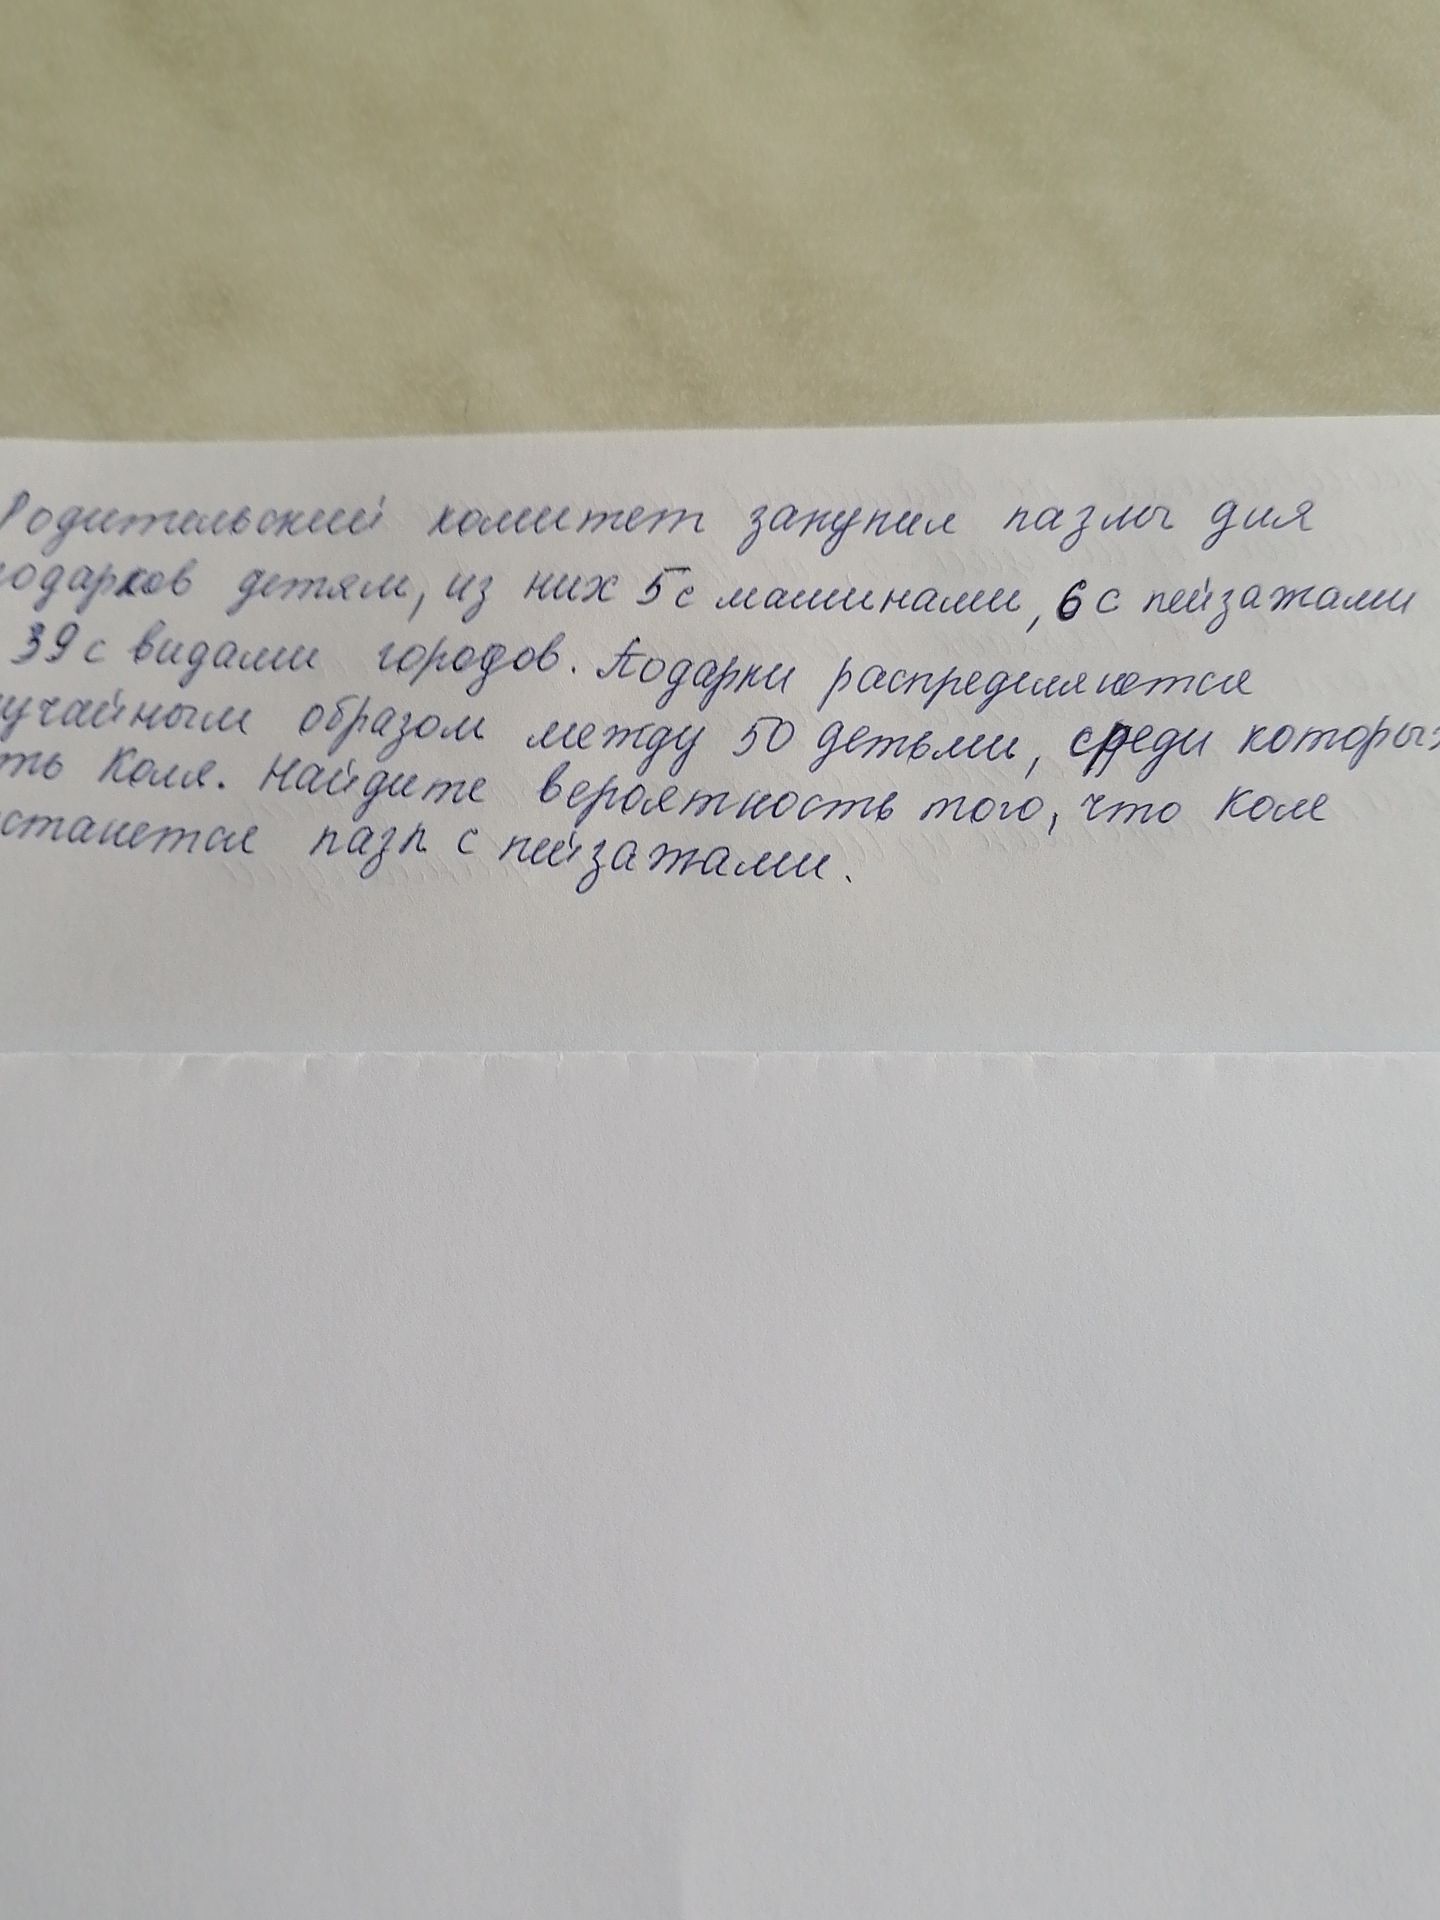 Родительский комитет закупил пазлы для
подарков детям, из них 5 с машинами, 6 с пейзажами
39 с видами городов. Подарки распределяются
учайным образом между 50 детьми, среди которых
ть Коля. Найдите вероятность того, что Коле
станется пазл с пейзажами.